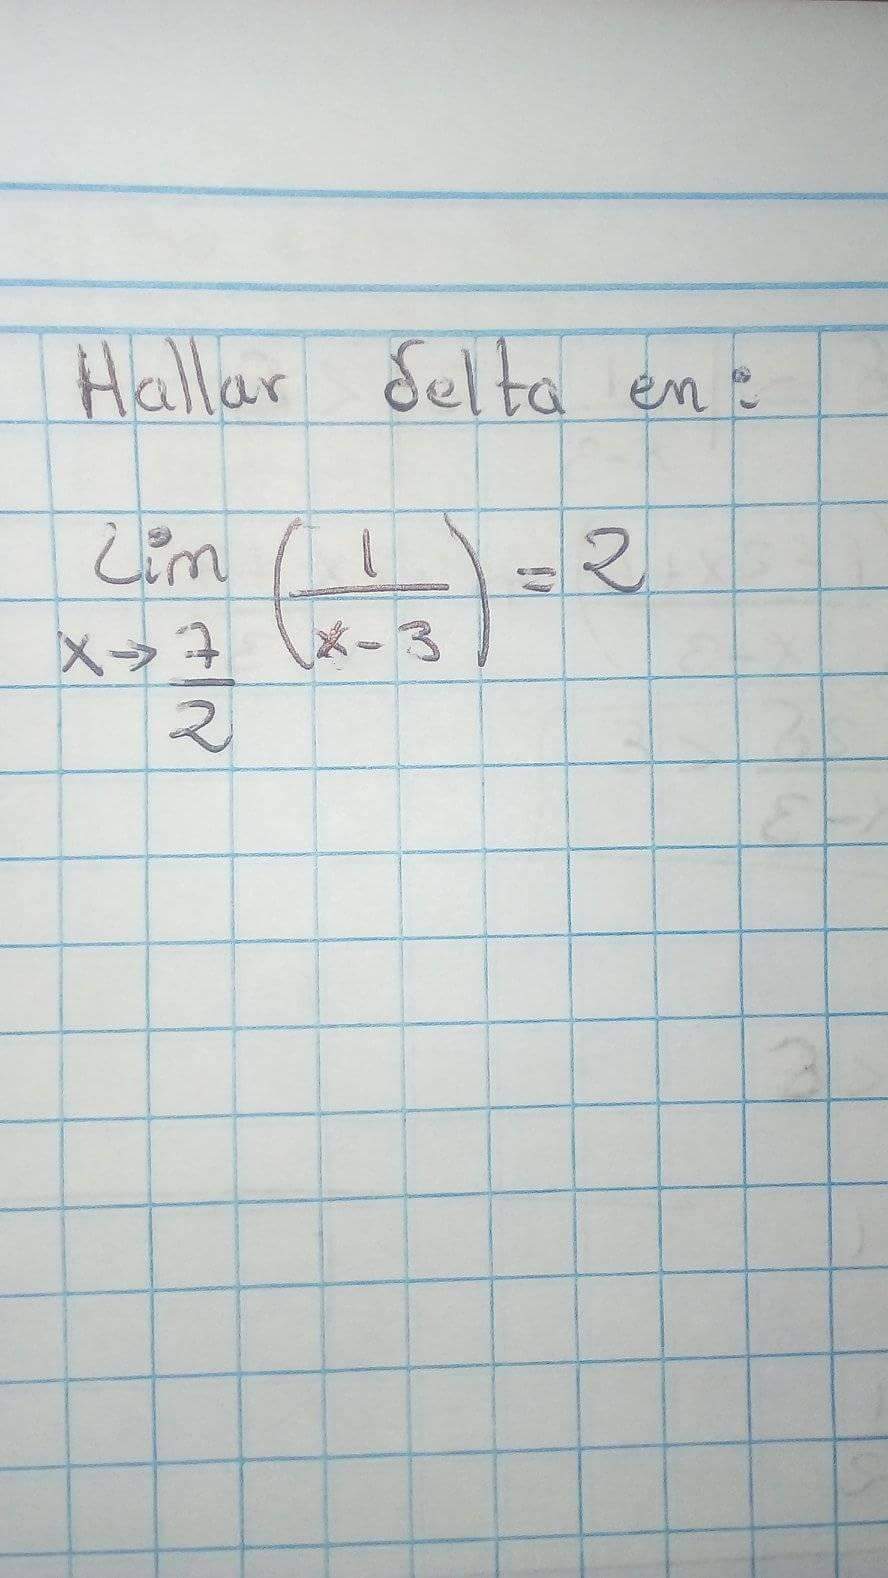 Hallar delta en:
Lim (1/(x-3)) = 2
x→7/2